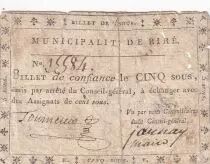 BILLET DE CINQ
MUNICIPALITÉ DE BIRÉ.
No. 15584
BILLET de confiance de CINQ sous,
émis par arrêté du Conseil-général, à échanger avec
des Assignats de cent sous.
Vu par nous Commissaires
du Conseil-général,
Launay
maire